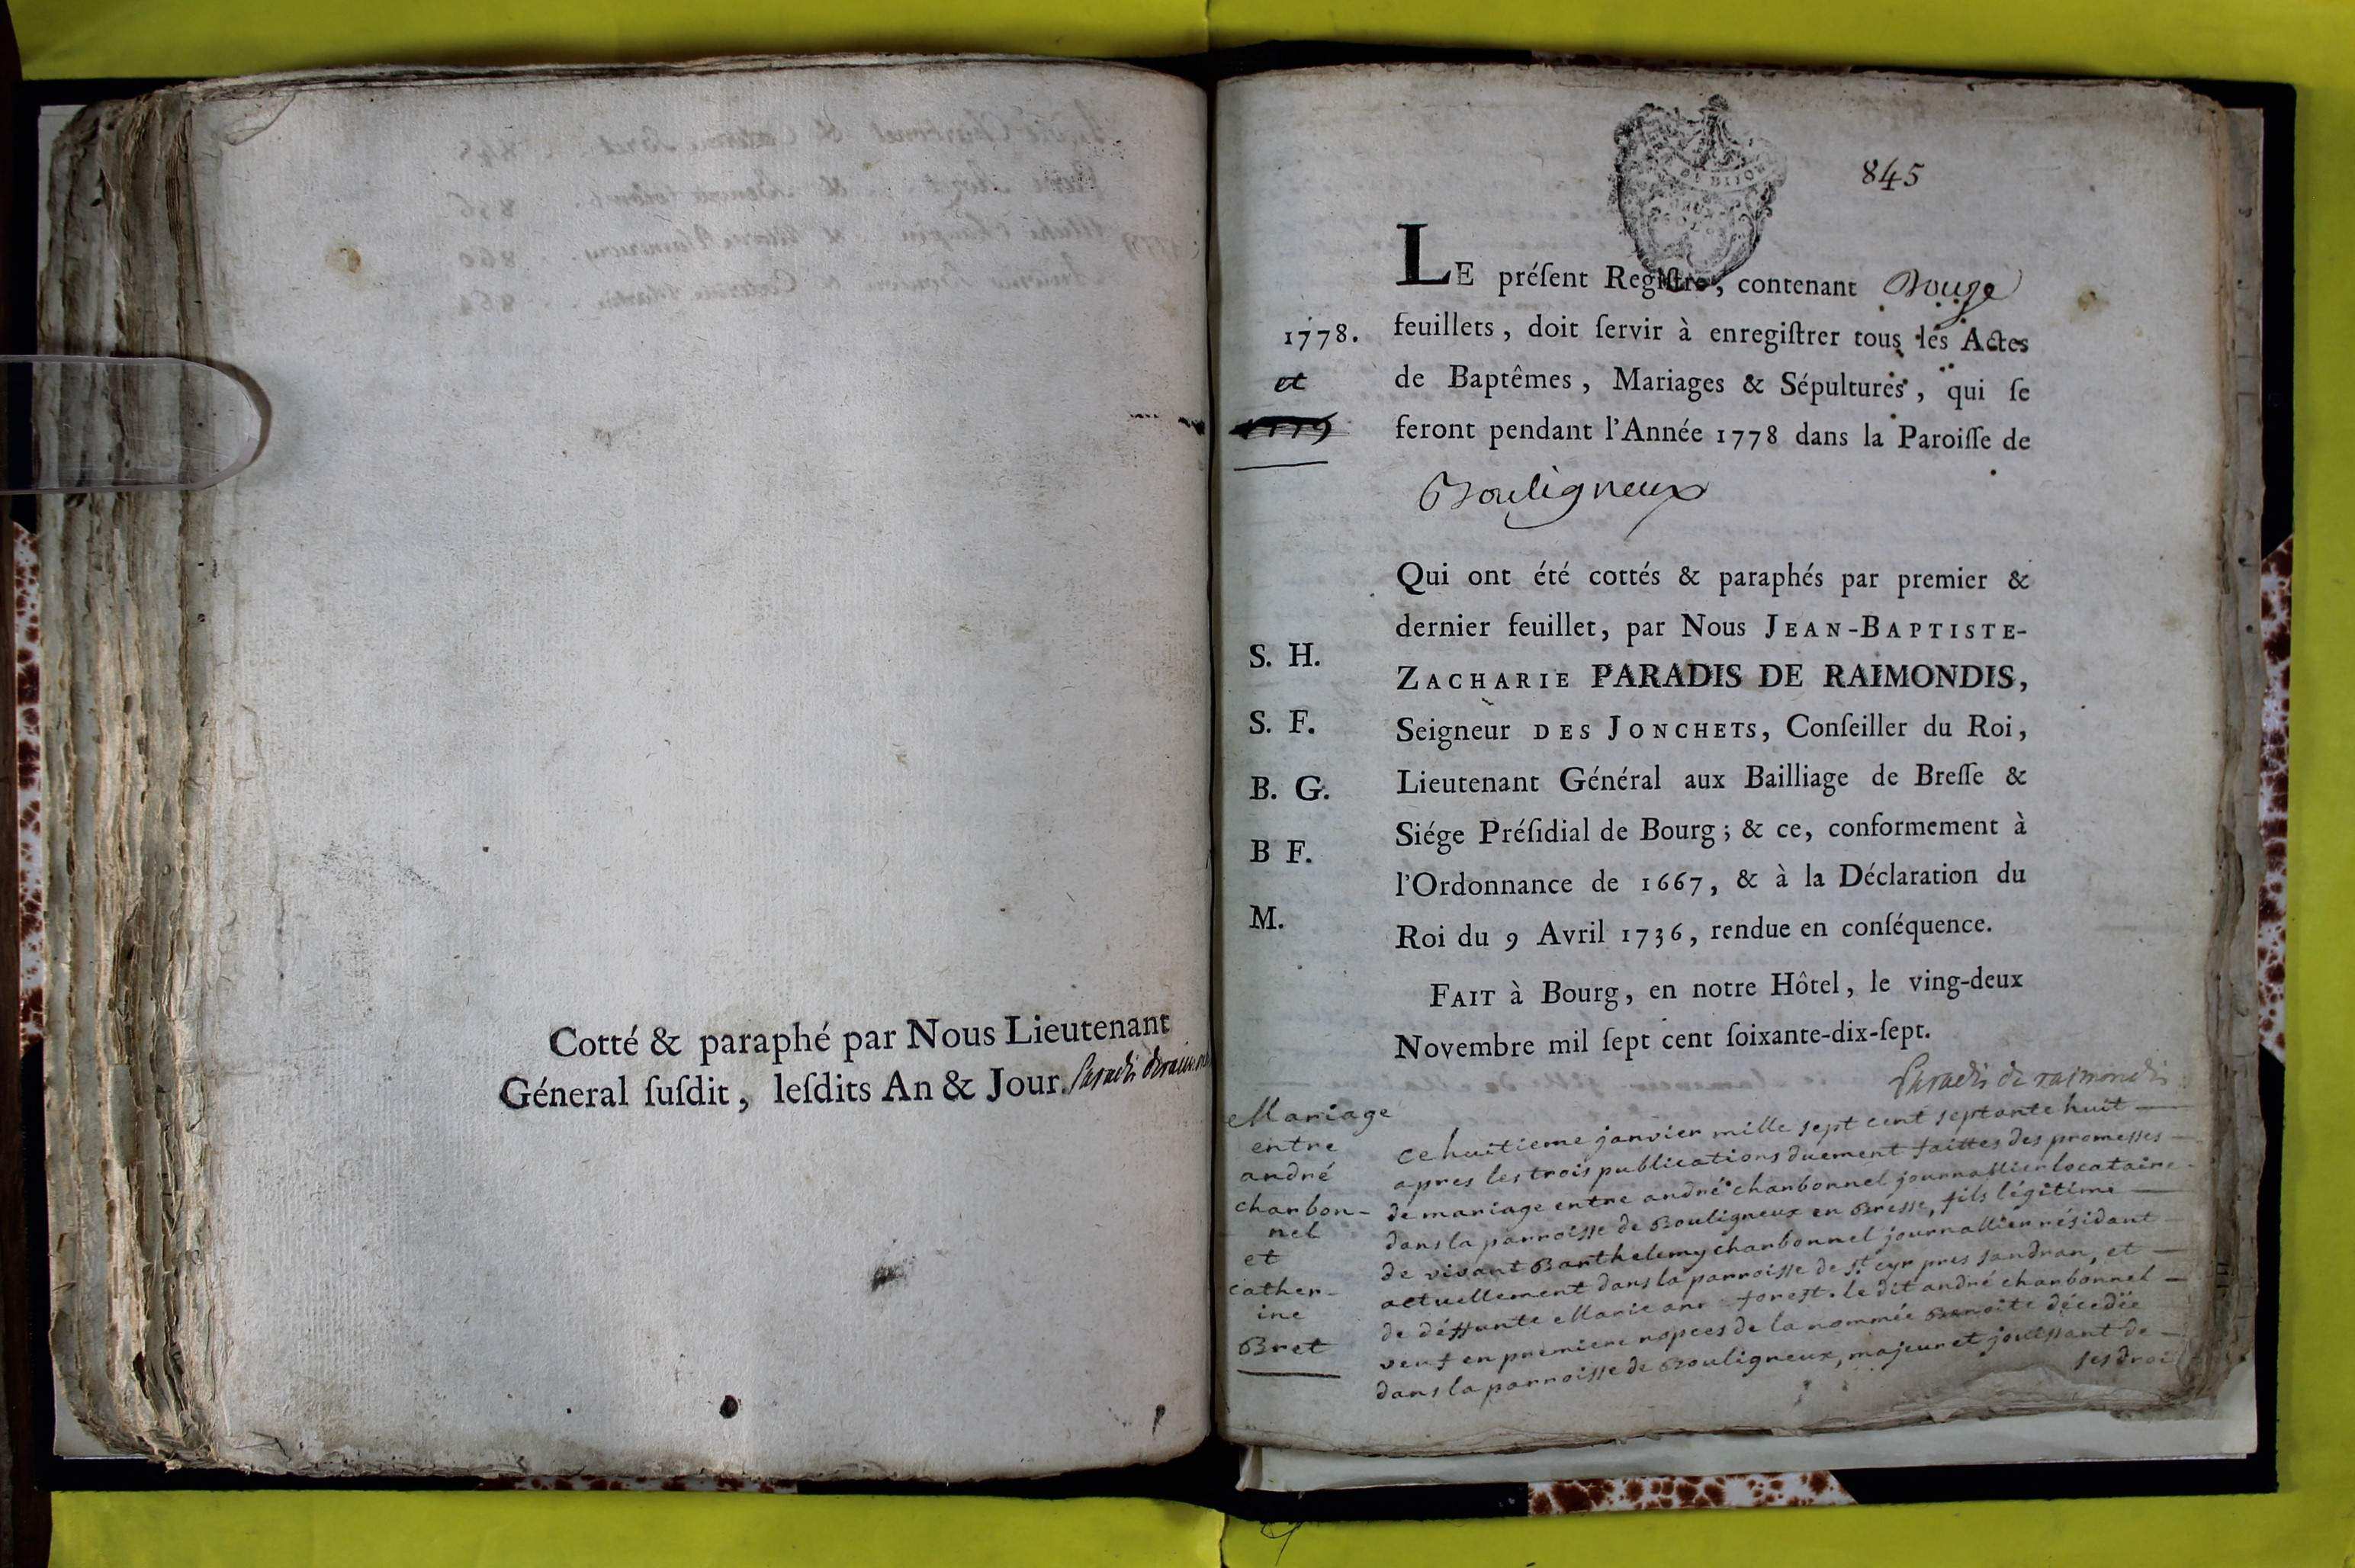 Cotté & paraphé par Nous Lieutenant
Géneral ſuſdit, leſdits An & Jour. Paradis deraimondis
845
LE préſent Regiſtre, contenant Douze
feuillets, doit ſervir à enregiſtrer tous les Actes
de Baptêmes, Mariages & Sépultures, qui ſe
feront pendant l'Année 1778 dans la Paroiſſe de
Bouligneux
1778.
et
1779
Qui ont été cottés & paraphés par premier &
dernier feuillet, par Nous JEAN-BAPTISTE-
ZACHARIE PARADIS DE RAIMONDIS,
Seigneur DES JONCHETS, Conſeiller du Roi,
Lieutenant Général aux Bailliage de Breſſe &
Siége Préſidial de Bourg; & ce, conformement à
l'Ordonnance de 1667, & à la Déclaration du
Roi du 9 Avril 1736, rendue en conſéquence.
S. H.
S. F.
B. G.
B F.
M.
FAIT à Bourg, en notre Hôtel, le ving-deux
Novembre mil ſept cent ſoixante-dix-ſept.
Paradis de raimondis
Mariage
entre
andré
charbon-
nel
et
cather-
ine
Bret
ce huitieme janvier mille sept cent septante huit
apres les trois publications duement faittes des promesses
de mariage entre andré charbonnel journallier locataire
dans la parroisse de Bouligneux en Bresse, fils légitime
de vivant Barthelemy charbonnel journallier résidant
actuellement dans la parroisse de st cyr pres sandran, et
de déffunte Marie ann forest. le dit andré charbonnel
veuf en premiere nopces de la nommée Benoite décedée
dans la parroisse de Bouligneux, majeur et jouissant de
ses droi